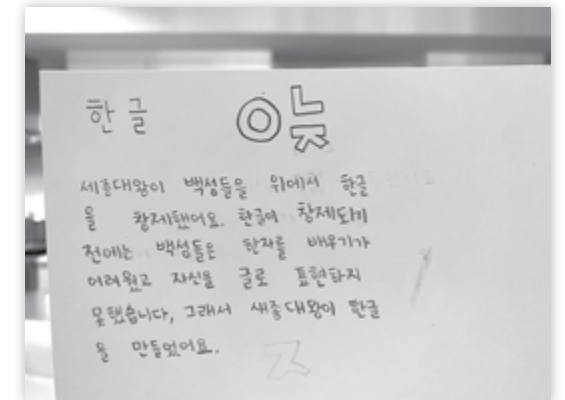 한글 ㅇ ㄴ ㅈ
세종대왕이 백성들을 위에서 한글
을 창제했어요. 한글이 창제되기
전에는 백성들은 한자를 배우기가
어려웠고 자신을 글로 표현하지
못했습니다, 그래서 세종대왕이 한글
을 만들었어요.
ㅈ